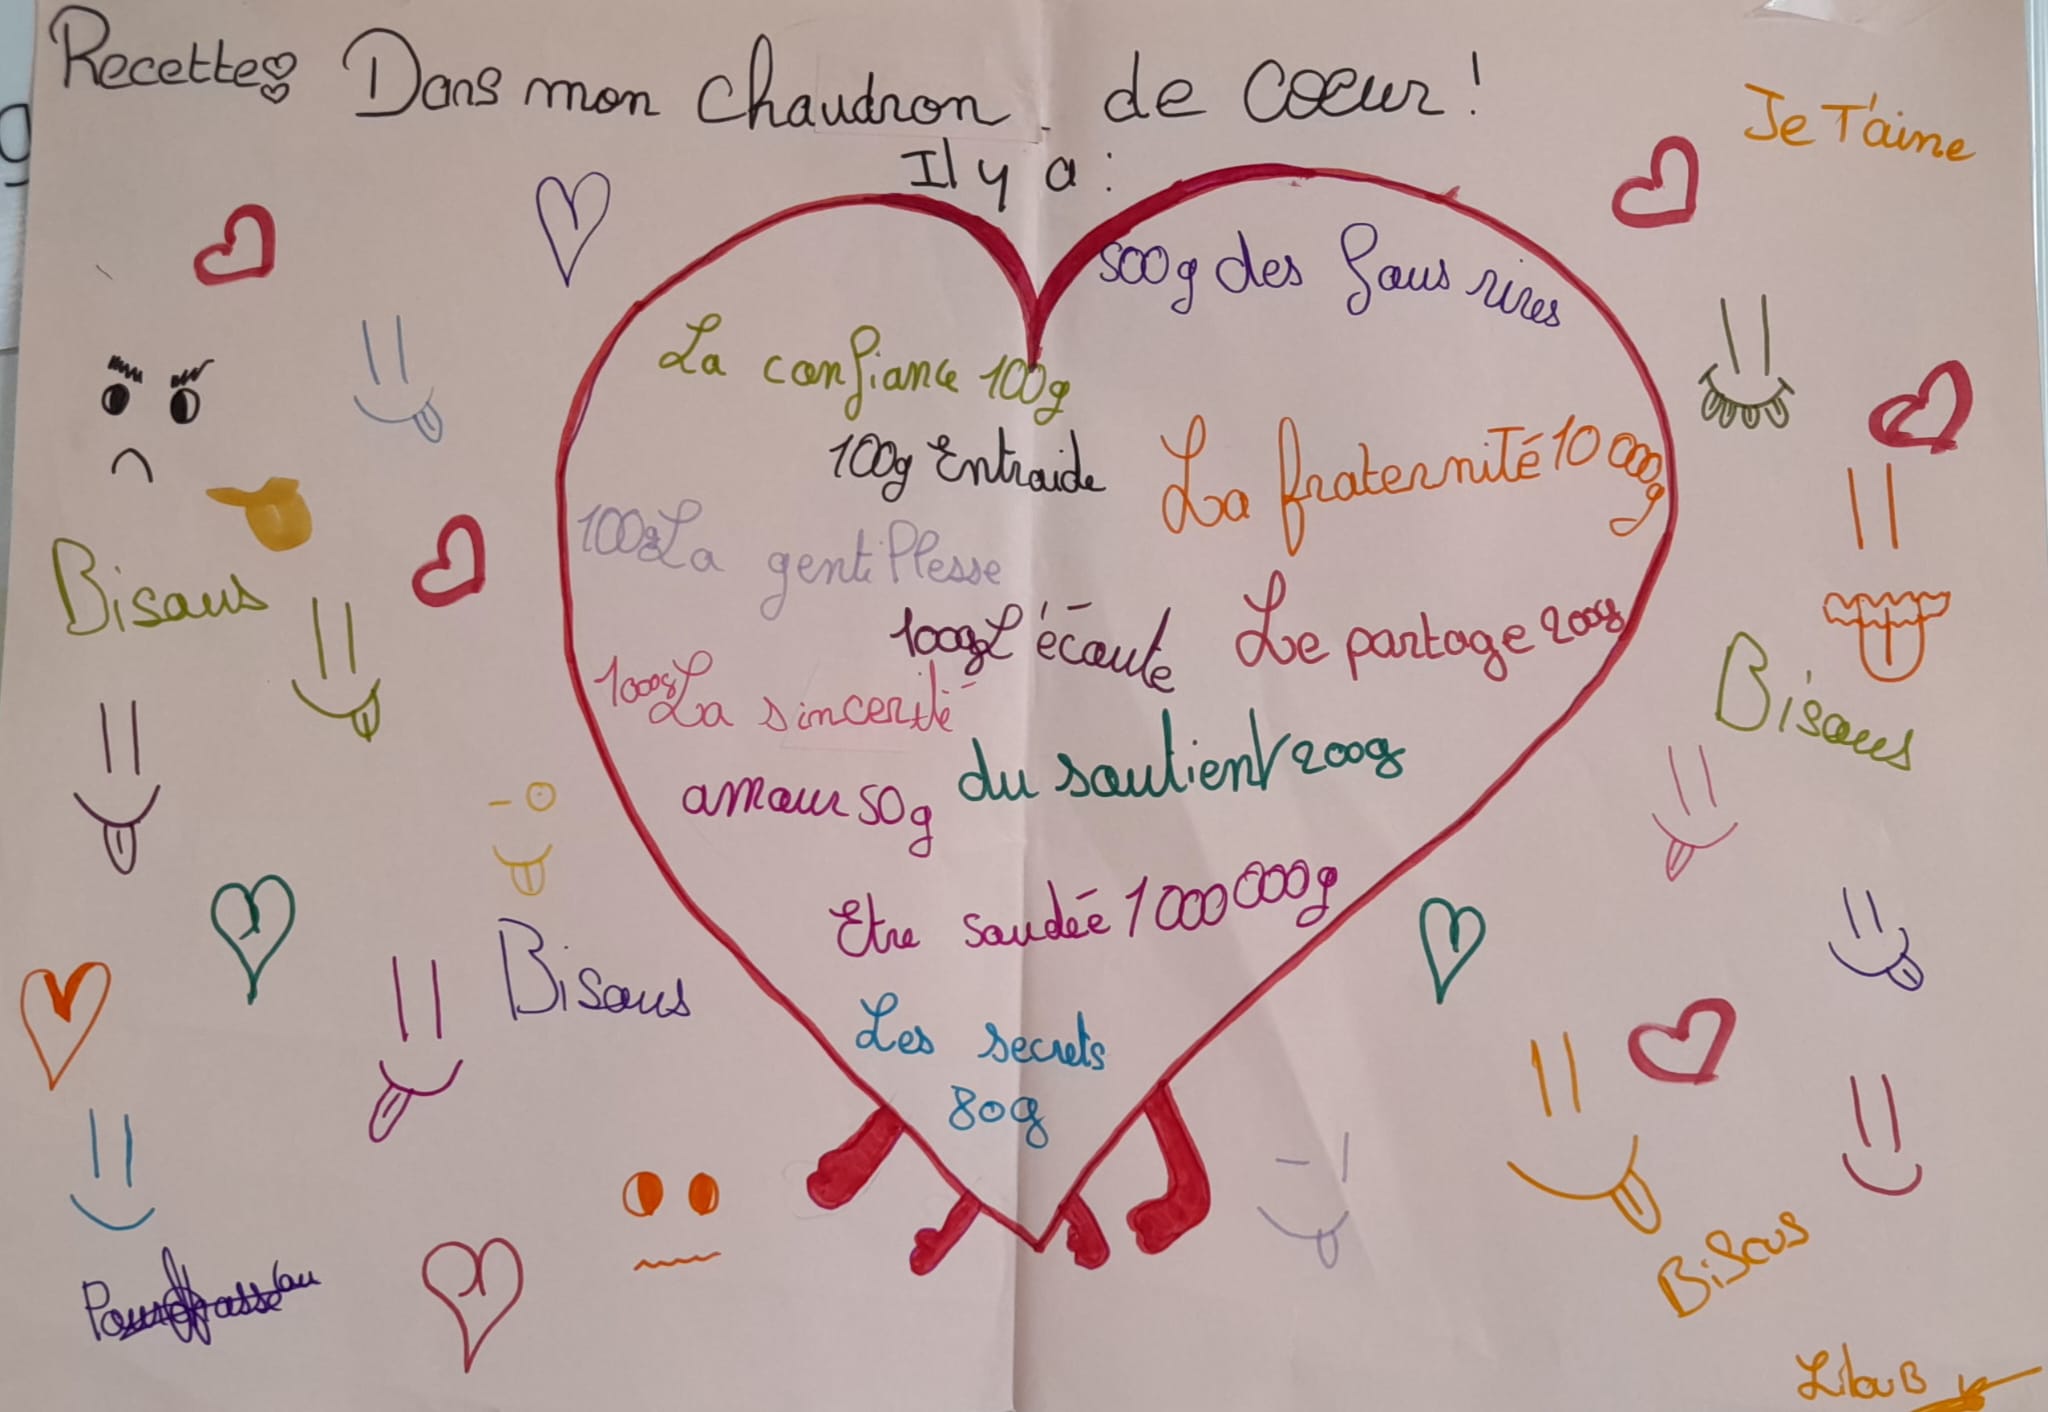 Recette Dans mon chaudron de coeur !
Il y a :
Je T'aime
500g des fous rires
La confiance 100g
100g Entraide
La fraternité 10 000g
100g La gentillesse
100g L'écoute
Le partage 200g
Bisous
1000g La sincerité
du soutient 200g
Bisous
amour 50g
Etre soudée 1 000 000g
Bisous
Les secrets
80g
Bisous
Lilou B